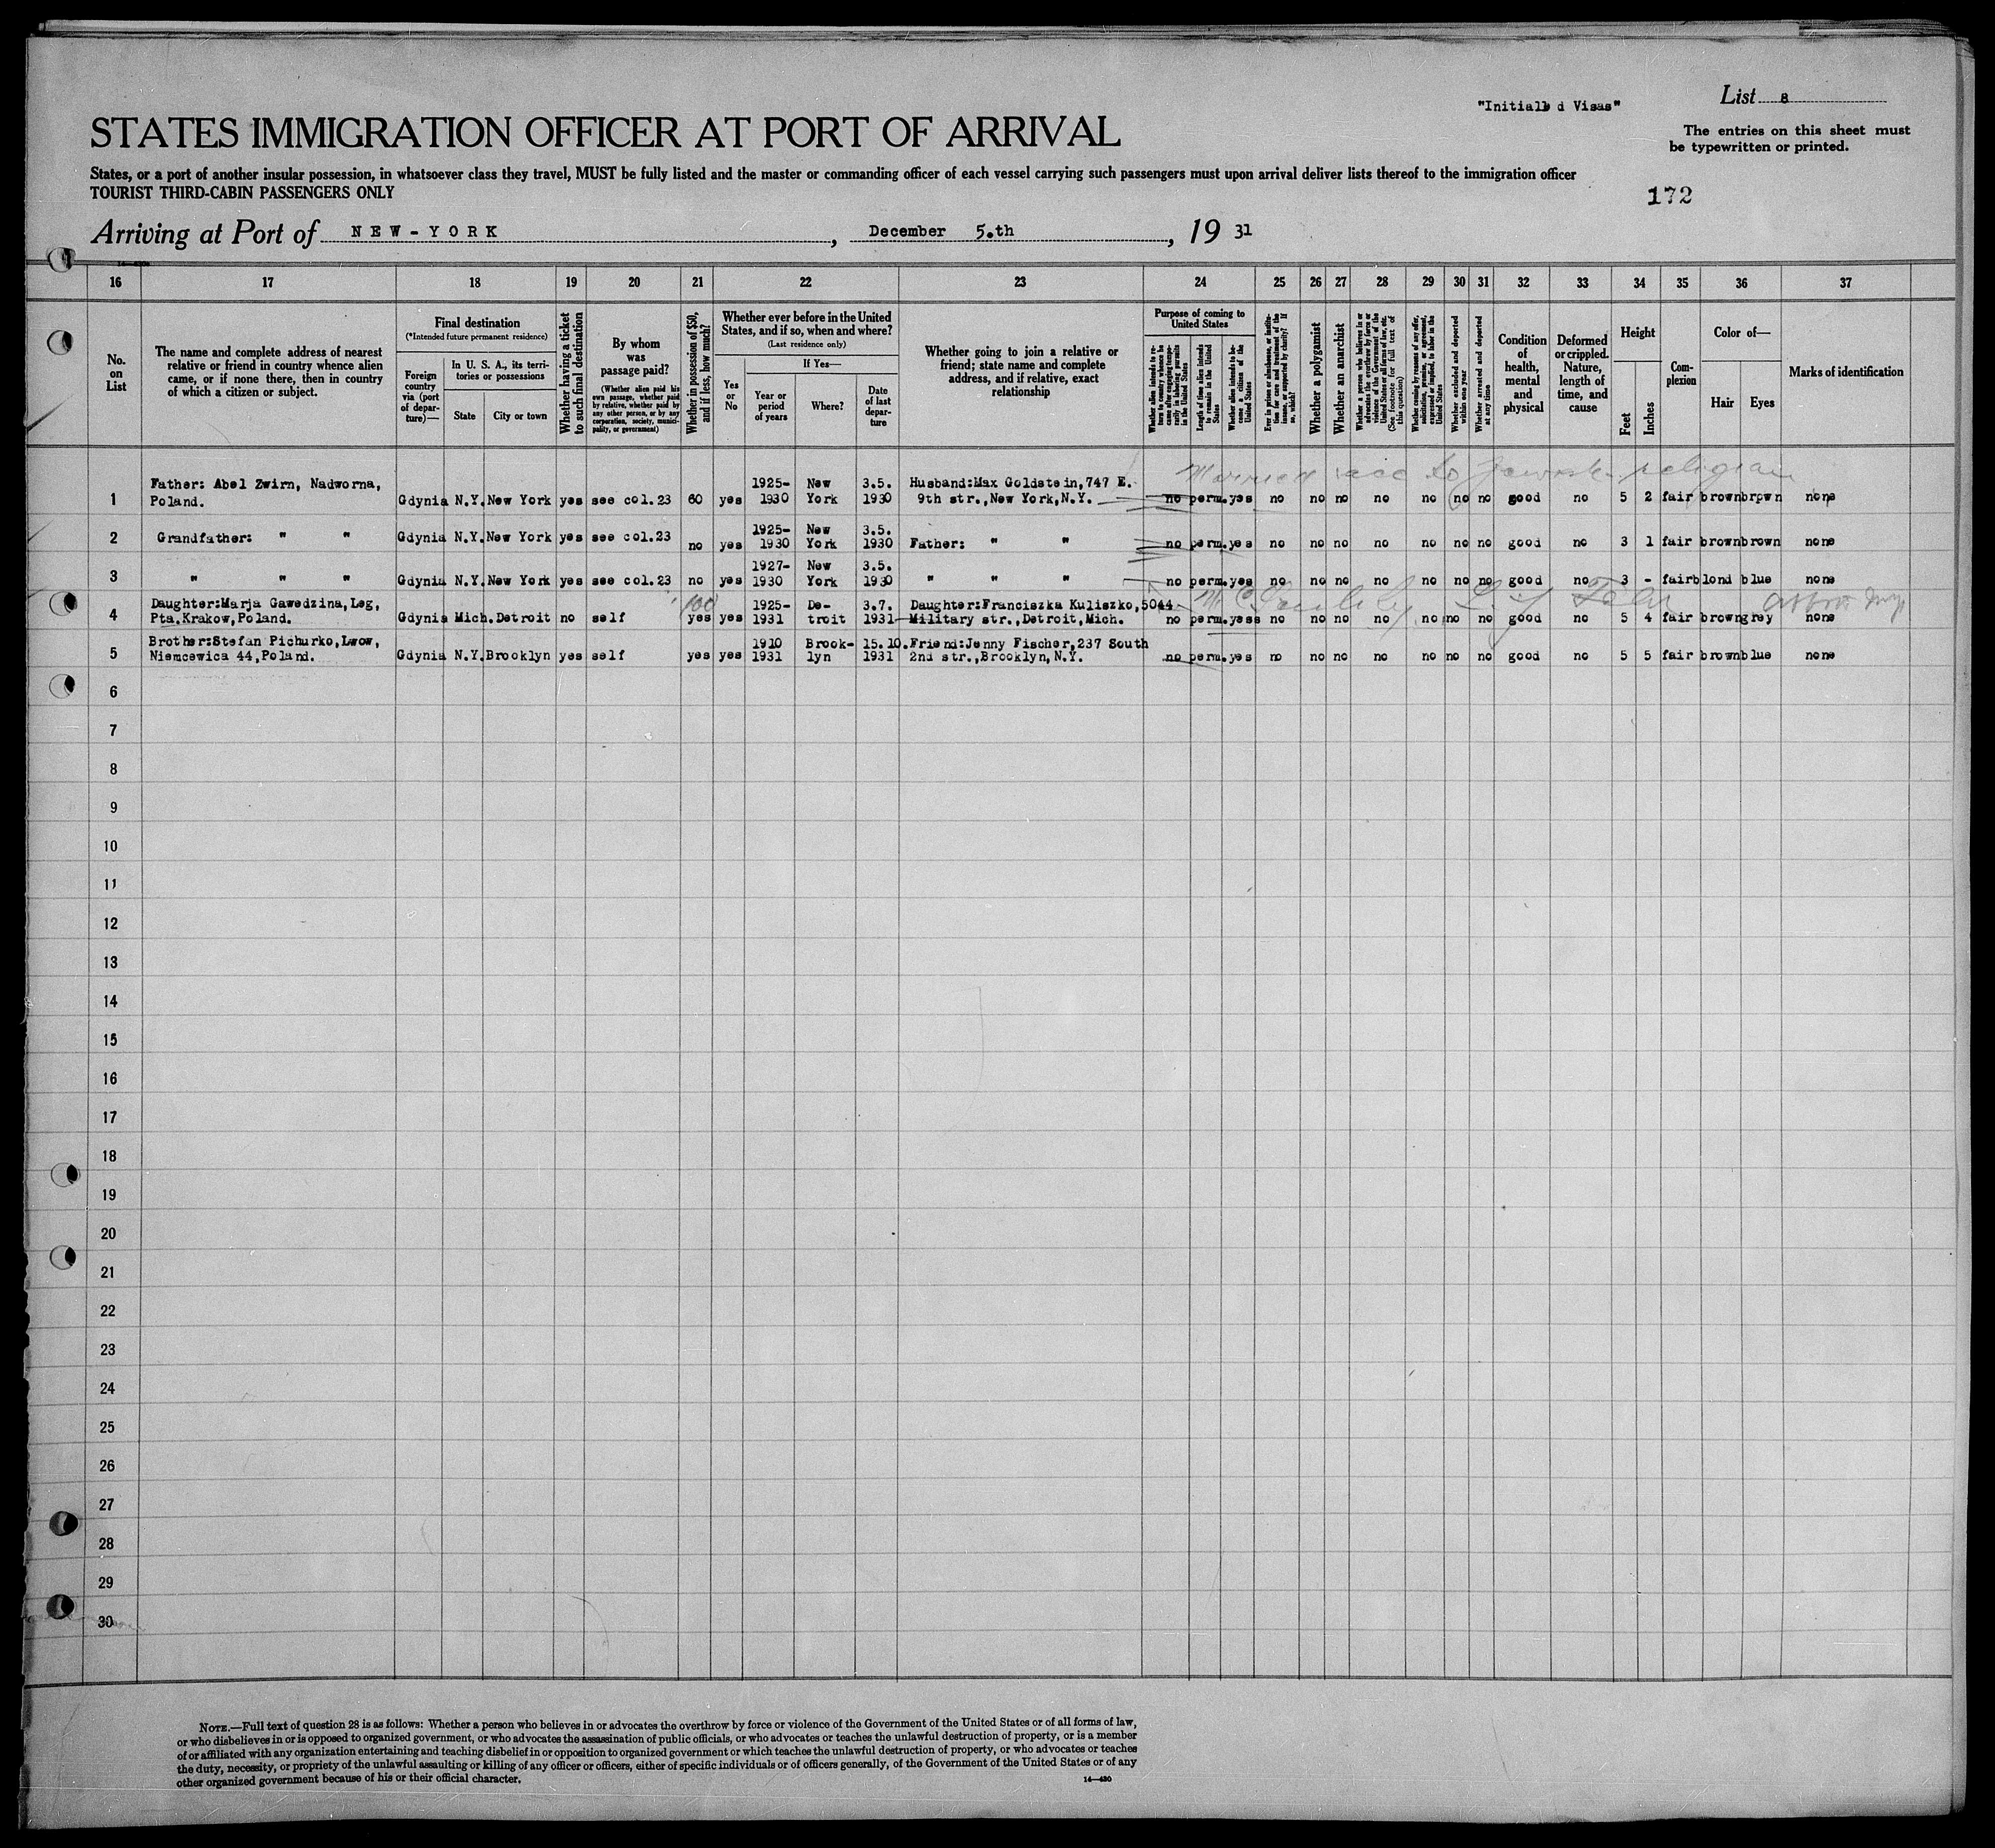 "Initialed Visas"
List 8
STATES IMMIGRATION OFFICER AT PORT OF ARRIVAL
The entries on this sheet must
be typewritten or printed.
States, or a port of another insular possession, in whatsoever class they travel, MUST be fully listed and the master or commanding officer of each vessel carrying such passengers must upon arrival deliver lists thereof to the immigration officer
TOURIST THIRD-CABIN PASSENGERS ONLY
172
Arriving at Port of NEW-YORK, December 5.th, 19 31
16 17 18 19 20 21 22 23 24 25 26 27 28 29 30 31 32 33 34 35 36 37
No. on List
The name and complete address of nearest relative or friend in country whence alien came, or if none there, then in country of which a citizen or subject.
Final destination
(*Intended future permanent residence)
Foreign country via (port of departure)—
In U. S. A., its territories or possessions
State
City or town
Whether having a ticket to such final destination
By whom was passage paid?
(Whether alien paid his own passage, whether paid by relative, whether paid by any other person, or by any corporation, society, municipality, or government)
Whether in possession of $50, and if less, how much?
Whether ever before in the United States, and if so, when and where?
(Last residence only)
Yes or No
If Yes—
Year or period of years
Where?
Date of last departure
Whether going to join a relative or friend; state name and complete address, and if relative, exact relationship
Purpose of coming to United States
Whether alien intends to return to country whence he came after engaging temporarily in laboring pursuits in the United States
Length of time alien intends to remain in the United States
Whether alien intends to become a citizen of the United States
Ever in prison or almshouse, or institution for care and treatment of the insane, or supported by charity? If so, which?
Whether a polygamist
Whether an anarchist
Whether a person who believes in or advocates the overthrow by force or violence of the Government of the United States or all forms of law, etc. (See footnote for full text of this question)
Whether coming by reason of any offer, solicitation, promise, or agreement, expressed or implied, to labor in the United States
Whether excluded and deported within one year
Whether arrested and deported at any time
Condition of health, mental and physical
Deformed or crippled. Nature, length of time, and cause
Height
Feet
Inches
Complexion
Color of—
Hair
Eyes
Marks of identification
Married acc to Jewish religion
1 Father: Abel Zwirn, Nadworna, Poland. Gdynia N.Y. New York yes see col.23 60 yes 1925-1930 New York 3.5. 1930 Husband:Max Goldstein,747 E. 9th str.,New York,N.Y. no perm. yes no no no no no no no good no 5 2 fair brown brown none
2 Grandfather: " " Gdynia N.Y. New York yes see col.23 no yes 1925-1930 New York 3.5. 1930 Father: " " no perm. yes no no no no no no no good no 3 1 fair brown brown none
3 " " " Gdynia N.Y. New York yes see col.23 no yes 1927-1930 New York 3.5. 1930 " " " no perm. yes no no no no no no no good no 3 - fair blond blue none
100
4 Daughter:Marja Gawedzina,Leg, Pta.Krakow,Poland. Gdynia Mich. Detroit no self yes yes 1925-1931 Detroit 3.7. 1931 Daughter:Franciszka Kuliszko,5044 Military str.,Detroit,Mich. no perm. yess no no no no no no no good no 5 4 fair brown grey none
5 Brother:Stefan Pichurko,Lwow, Niemcewica 44,Poland. Gdynia N.Y. Brooklyn yes self yes yes 1910 1931 Brooklyn 15.10. 1931 Friend:Jenny Fischer,237 South 2nd str.,Brooklyn,N.Y. no perm. yes no no no no no no no good no 5 5 fair brown blue none
6
7
8
9
10
11
12
13
14
15
16
17
18
19
20
21
22
23
24
25
26
27
28
29
30
NOTE.—Full text of question 28 is as follows: Whether a person who believes in or advocates the overthrow by force or violence of the Government of the United States or of all forms of law,
or who disbelieves in or is opposed to organized government, or who advocates the assassination of public officials, or who advocates or teaches the unlawful destruction of property, or is a member
of or affiliated with any organization entertaining and teaching disbelief in or opposition to organized government or which teaches the unlawful destruction of property, or who advocates or teaches
the duty, necessity, or propriety of the unlawful assaulting or killing of any officer or officers, either of specific individuals or of officers generally, of the Government of the United States or of any
other organized government because of his or their official character.
14—430